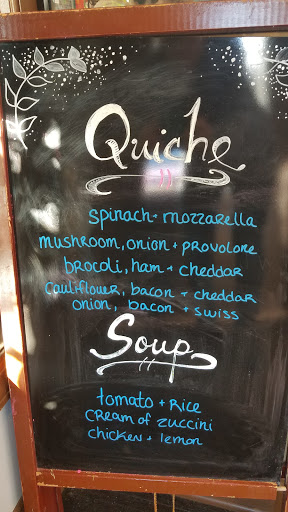 Quiche
spinach + mozzarella
mushroom, onion + provolone
brocoli, ham + cheddar
cauliflower, bacon + cheddar
onion, bacon + swiss
Soup
tomato + Rice
cream of zuccini
chicken + lemon